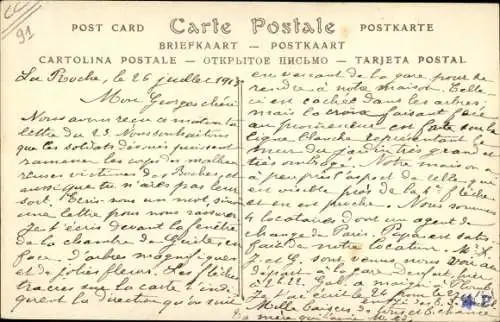 91
POST CARD — Carte Postale — POSTKARTE
BRIEFKAART — POSTKAART
CARTOLINA POSTALE — ОТКРЫТОЕ ПИСЬМО — TARJETA POSTAL
La Roche, le 26 juillet 191
Mon Georges chéri
Nous avons reçu ce matin ta
lettre du 23. Nous souhaitons
que les soldats puissent
ramener les corps des malheu-
reuses victimes des Boches, et
aussi que tu n'aies pas leur
sort. Ecris-nous un mot, sinon
une lettre pour nous rassurer.
Je t'écris devant la fenêtre
de la chambre de en
face d'arbres magnifiques
et de jolies fleurs. Les flèches
tracées sur la carte t'indi-
quent la direction qu'on suit
en venant de la gare pour se
rendre à notre maison. Celle-
ci est cachée dans les arbres,
mais la croix faisant face
au promeneur est faite sur la
ligne blanche représentant le
mur du jardin très grand et
très ombragé. Notre maison a
à peu près l'aspect de celle qui
est visible près de la flèche
et en est proche. Nous sommes
4 locataires dont un agent de
change de Paris. Papa est satis-
fait de notre location.
et G. sont venus nous voir au
départ à la gare
à
Mille baisers et chance